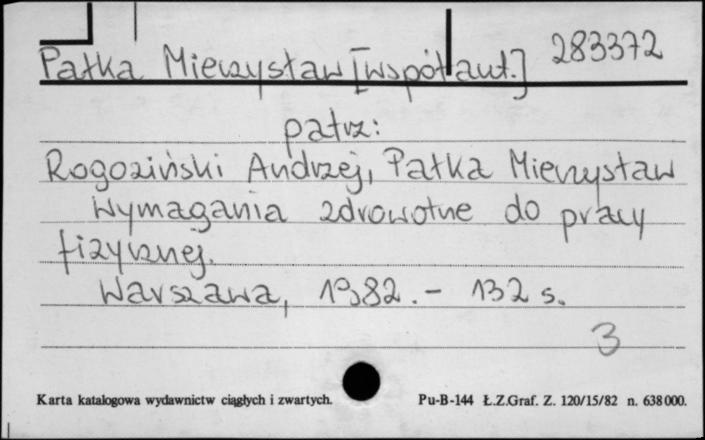 Pałka Mieczysław [współaut.] 283372
patrz:
Rogoziński Andrzej, Pałka Mieczysław
Wymagania zdrowotne do pracy
fizycznej.
Warszawa, 1982. - 132 s.
3
Karta katalogowa wydawnictw ciągłych i zwartych. Pu-B-144 Ł.Z.Graf. Z. 120/15/82 n. 638000.